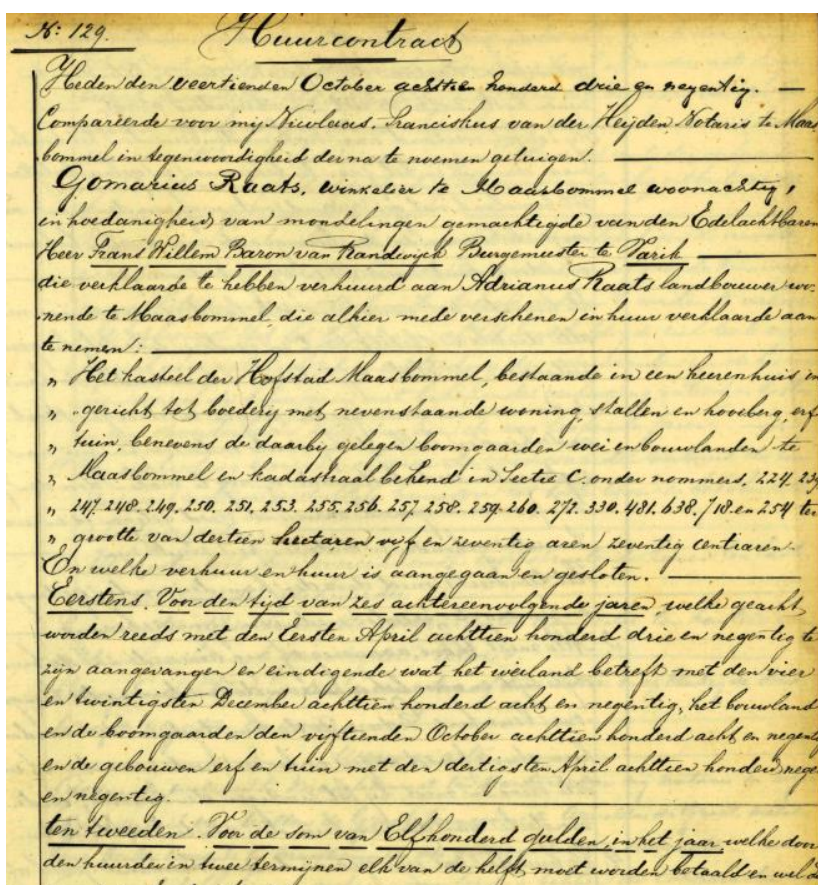 No: 129. Huurcontract
Heden den veertienden October achttien honderd drie en negentig. —
Compareerde voor mij Nicolaas, Franciskus van der Heijden, Notaris te Maas
bommel in tegenwoordigheid der na te noemen getuigen. —
Gomarius Raats, winkelier te Maasbommel woonachtig,
in hoedanigheid van mondelingen gemachtigde van den Edelachtbaren
Heer Frans Willem Baron van Randwijck Burgemeester te Varik —
die verklaarde te hebben verhuurd aan Adrianus Raats landbouwer wo-
nende te Maasbommel, die alhier mede verschenen in huur verklaarde aan
te nemen: —
„ Het kasteel der Hofstad Maasbommel, bestaande in een heerenhuis in
„ gericht tot boederij met nevenstaande woning, stallen en hooiberg, erf
„ tuin, benevens de daarby gelegen boomgaarden wei en bouwlanden te
„ Maasbommel en kadastraal bekend in Sectie C. onder nommers, 224. 239
„ 247. 248. 249. 250. 251. 253. 255. 256. 257. 258. 259. 260. 272. 330. 481. 638. 718. en 254 ter
„ grootte van dertien hectaren vijf en zeventig aren zeventig centiaren.
En welke verhuur en huur is aangegaan en gesloten. —
Eerstens. Voor den tijd van zes achtereenvolgende jaren, welke geacht
worden reeds met den Eersten April achttien honderd drie en negentig te
zijn aangevangen en eindigende wat het weiland betreft met den vier
en twintigsten December achttien honderd acht en negentig, het bouwland
en de boomgaarden den vijftienden October achttien honderd acht en negentig
en de gebouwen erf en tuin met den dertigsten April achttien honderd negen
en negentig. —
ten tweeden. Voor de som van Elfhonderd gulden, in het jaar welke door
den huurder in twee termijnen elk van de helft moet worden betaald en wel de